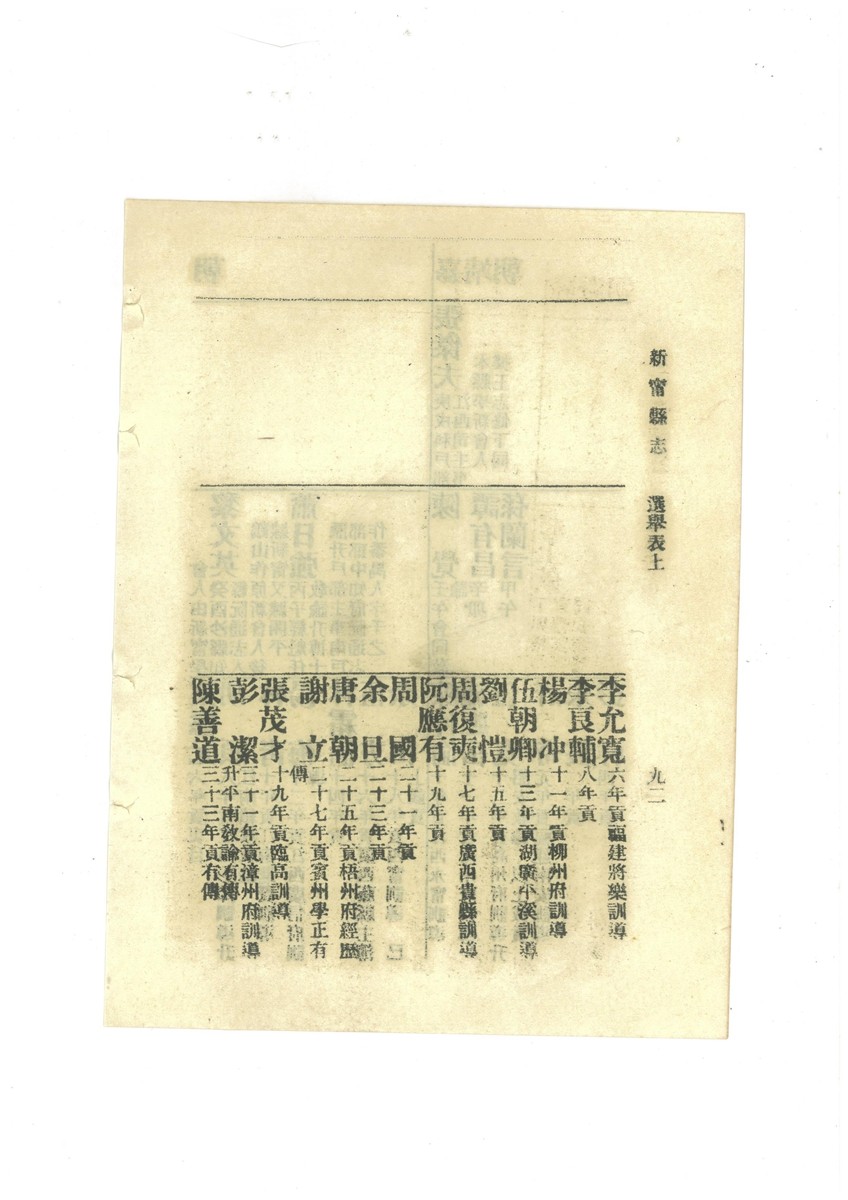 新甯縣志
選舉表上
九二
李允寬 六年貢福建將樂訓導
李良輔 八年貢
楊冲 十一年貢柳州府訓導
伍朝卿 十三年貢湖廣平溪訓導
劉愷 十五年貢
周復奭 十七年貢廣西貴縣訓導
阮應有 十九年貢
周國 二十一年貢
余旦 二十三年貢
唐朝 二十五年貢梧州府經歷
謝立 二十七年貢賓州學正有
傳
張茂才 十九年貢臨高訓導
彭潔 三十一年貢漳州府訓導
升平南敎諭有傳
陳善道 三十三年貢有傳